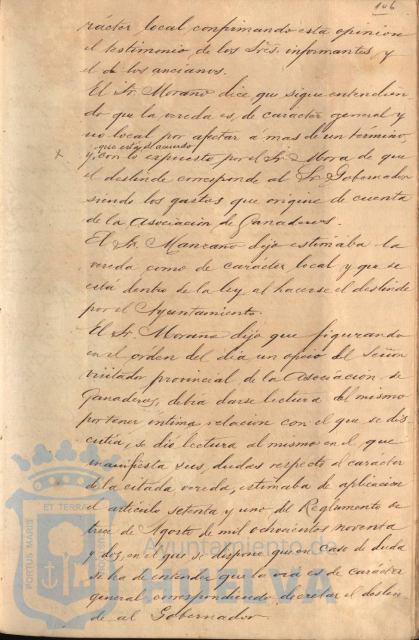 106
rácter local confirmando esta opinion
el testimonio de los Sres. informantes y
el de los ancianos.
El Sr. Morano dice que sigue entendien
do que la vereda es, de caracter general y
no local por afectar a mas de un termino,
que está de acuerdo
y, con lo expuesto por el Sr. Mora de que
el deslinde corresponde al Sr. Gobernador
siendo los gastos que origine de cuenta
de la Asociacion de Ganaderos.
El Sr. Manzano dijo estimaba la
vereda como de carácter local y que se
está dentro de la ley al hacerse el deslinde
por el Ayuntamiento.
El Sr. Morano dijo que figurando
en el orden del dia un oficio del Señor
visitador provincial de la Asociacion de
Ganaderos, debia darse lectura del mismo
por tener íntima relacion con el que se dis-
cutia, se dió lectura al mismo en el que
manifiesta sus dudas respecto al carácter
de la citada vereda, estimaba de aplicacion
el artículo setenta y uno del Reglamento de
trece de Agosto de mil ochocientos noventa
y dos, en el que se dispone que en caso de duda
se ha de entender que la via es de carácter
general correspondiendo decretar el deslin-
de al Gobernador
PORTUS MARIS
ET TERRAE
Ayuntamiento de
HUELVA